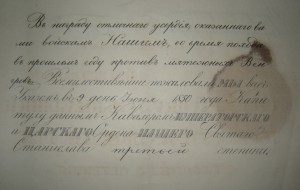 Въ награду отличнаго усердія, оказаннаго ва-
ми войскамъ Нашимъ, во время похода
въ прошломъ году противъ мятежныхъ Вен-
гровъ, Всемилостивѣйше пожаловали Мы Вас
въ 9 день 1850 года
даннымъ Кавалеромъ ИМПЕРАТОРСКАГО
и ЦАРСКАГО Ордена НАШЕГО Святаго
Станислава третьей степени